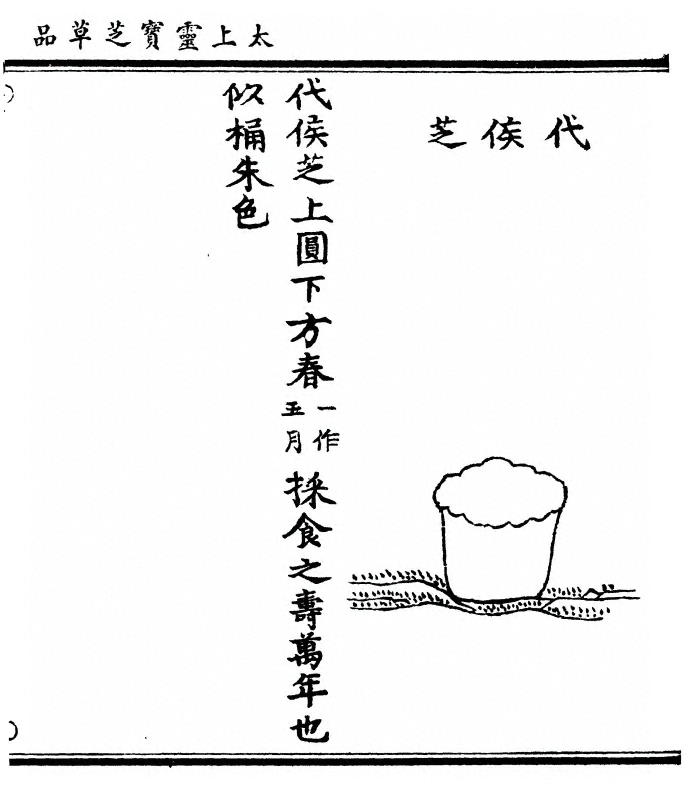 太上靈寶芝草品
代侯芝
代侯芝上圓下方春一作五月採食之壽萬年也
似桶朱色